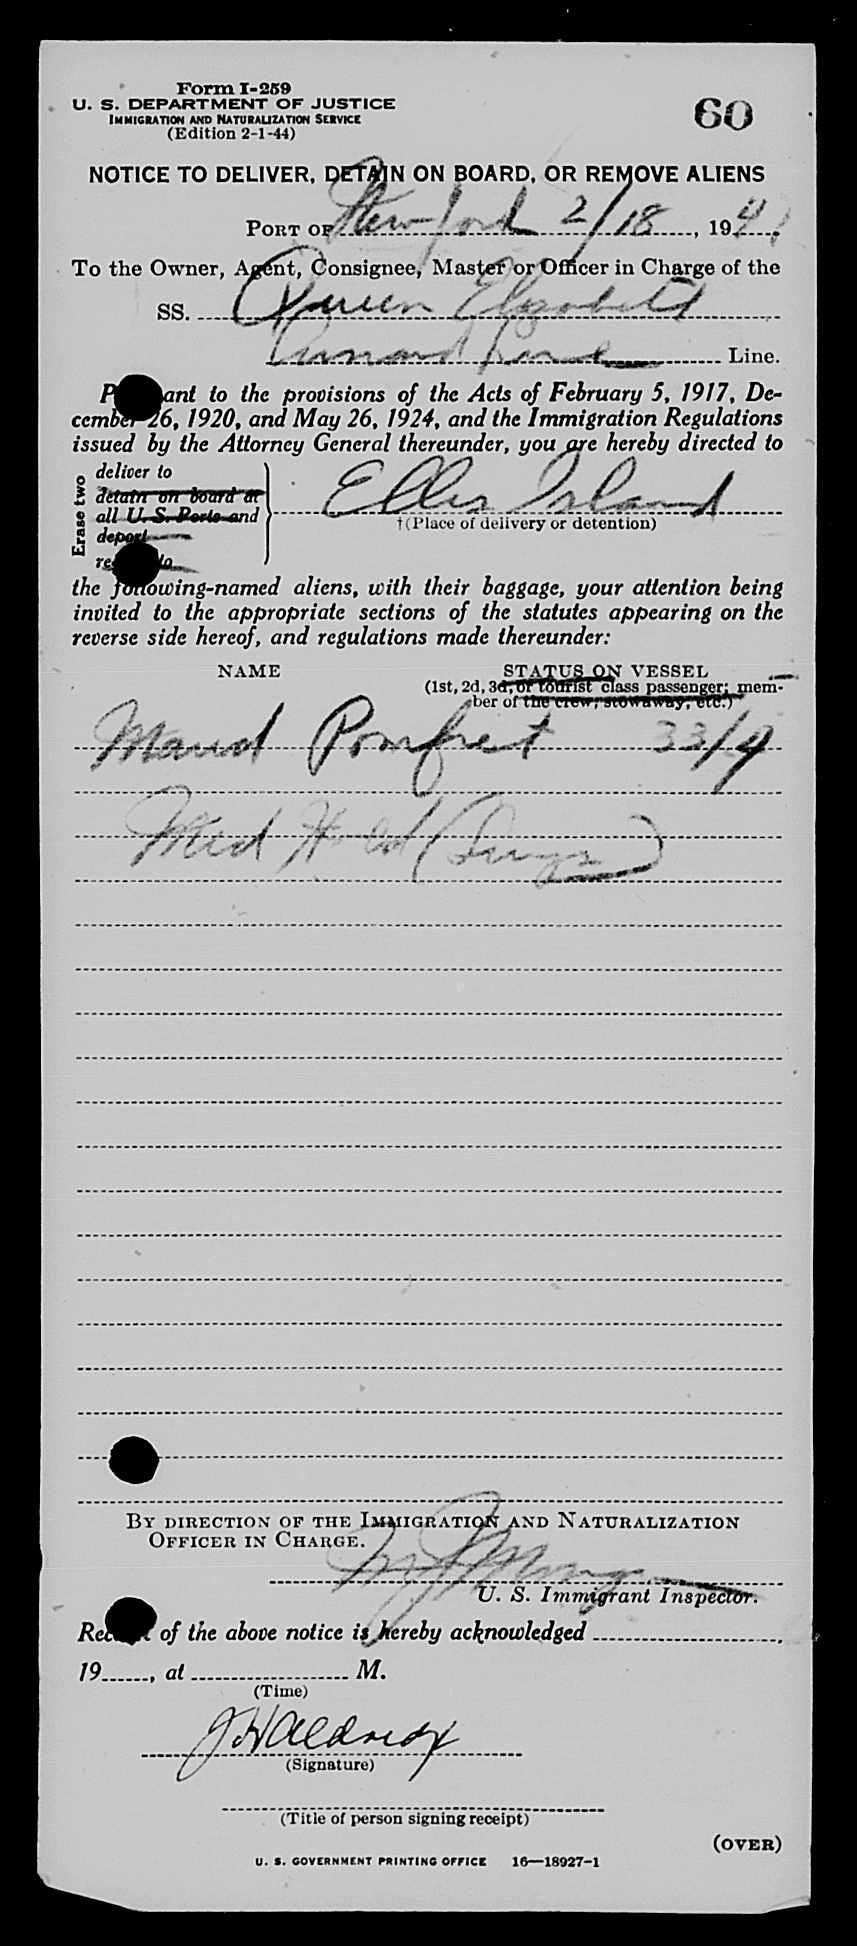 Form I-259
U. S. DEPARTMENT OF JUSTICE
IMMIGRATION AND NATURALIZATION SERVICE
(Edition 2-1-44)
60
NOTICE TO DELIVER, DETAIN ON BOARD, OR REMOVE ALIENS
PORT OF New York 2/18, 194
To the Owner, Agent, Consignee, Master or Officer in Charge of the
SS. Queen Elizabeth
Cunard Line Line.
ant to the provisions of the Acts of February 5, 1917, De-
cember 26, 1920, and May 26, 1924, and the Immigration Regulations
issued by the Attorney General thereunder, you are hereby directed to
Erase two
deliver to
detain on board at
all U. S. Ports and
deport
to
Ellis Island
†(Place of delivery or detention)
the following-named aliens, with their baggage, your attention being
invited to the appropriate sections of the statutes appearing on the
reverse side hereof, and regulations made thereunder:
NAME
STATUS ON VESSEL
(1st, 2d, 3d, or tourist class passenger; mem-
ber of the crew, stowaway, etc.)
Maud Pomfret 33/9
Med Hold (Lungs)
BY DIRECTION OF THE IMMIGRATION AND NATURALIZATION
OFFICER IN CHARGE.
U. S. Immigrant Inspector.
of the above notice is hereby acknowledged
19, at M.
(Time)
(Signature)
(Title of person signing receipt)
(OVER)
U. S. GOVERNMENT PRINTING OFFICE 16—18927-1